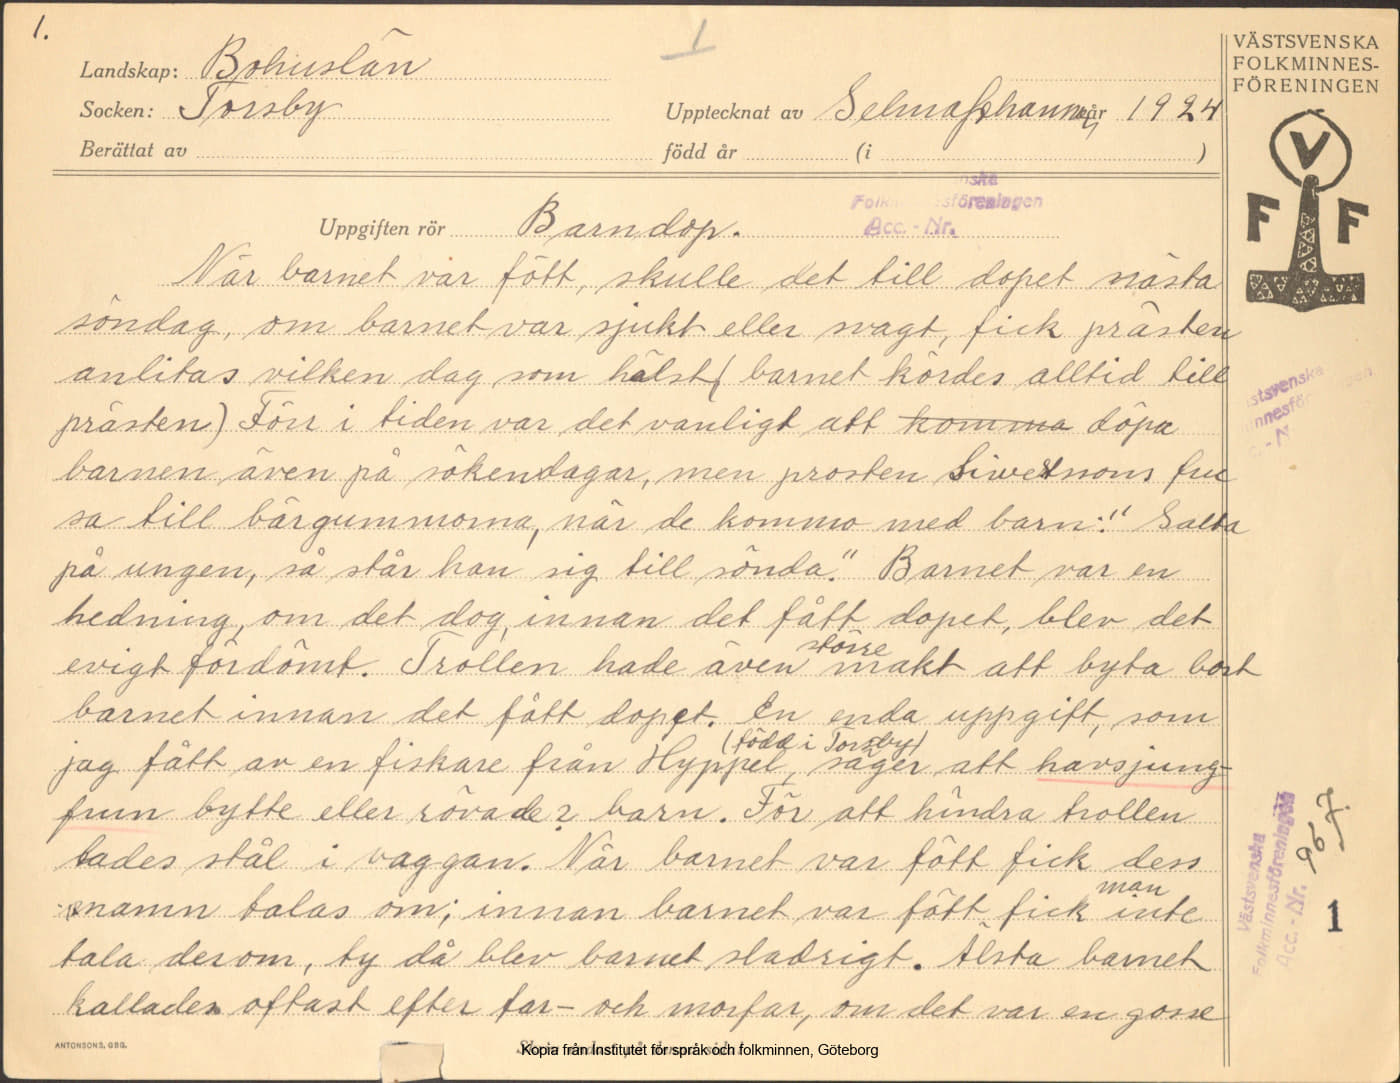 1.
1
Landskap: Bohuslän
Socken: Torsby
Upptecknat av Selma Johannes, år 1924
Berättat av
född år (i )
VÄSTSVENSKA
FOLKMINNES-
FÖRENINGEN
V
F F
Uppgiften rör Barndop.
Folk sföreningen
Acc. - Nr.
När barnet var fött, skulle det till dopet nästa
söndag, om barnet var sjukt eller svagt, fick prästen
anlitas vilken dag som hälst (barnet kördes alltid till
prästen) Förr i tiden var det vanligt att komma döpa
barnen även på sökendagar, men prosten fru
sa till bärgummorna, när de kommo med barn: "Salta
på ungen, så står han sig till sönda." Barnet var en
hedning, om det dog, innan det fått dopet, blev det
evigt fördömt. Trollen hade även större makt att byta bort
barnet innan det fått dopet. En enda uppgift, som
jag fått av en fiskare från Hyppel, (född i Torsby) säger att havsjung-
frun bytte eller rövade? barn. För att hindra trollen
lades stål i vaggan. När barnet var fött fick dess
namn talas om; innan barnet var fött fick man inte
tala derom, ty då blev barnet sladrigt. Älsta barnet
kallades oftast efter far- och morfar, om det var en gosse
Västsvenska
Folkminnesföreningen
Acc. - Nr. 967
1
ANTONSONS, GBG.
Kopia från Institutet för språk och folkminnen, Göteborg